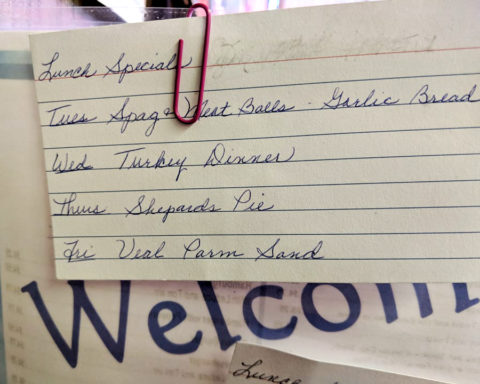 Lunch Specials
Tues Spag & Meat Balls - Garlic Bread
Wed Turkey Dinner
Thurs Shepards Pie
Fri Veal Parm Sand
Welcom
Lunch